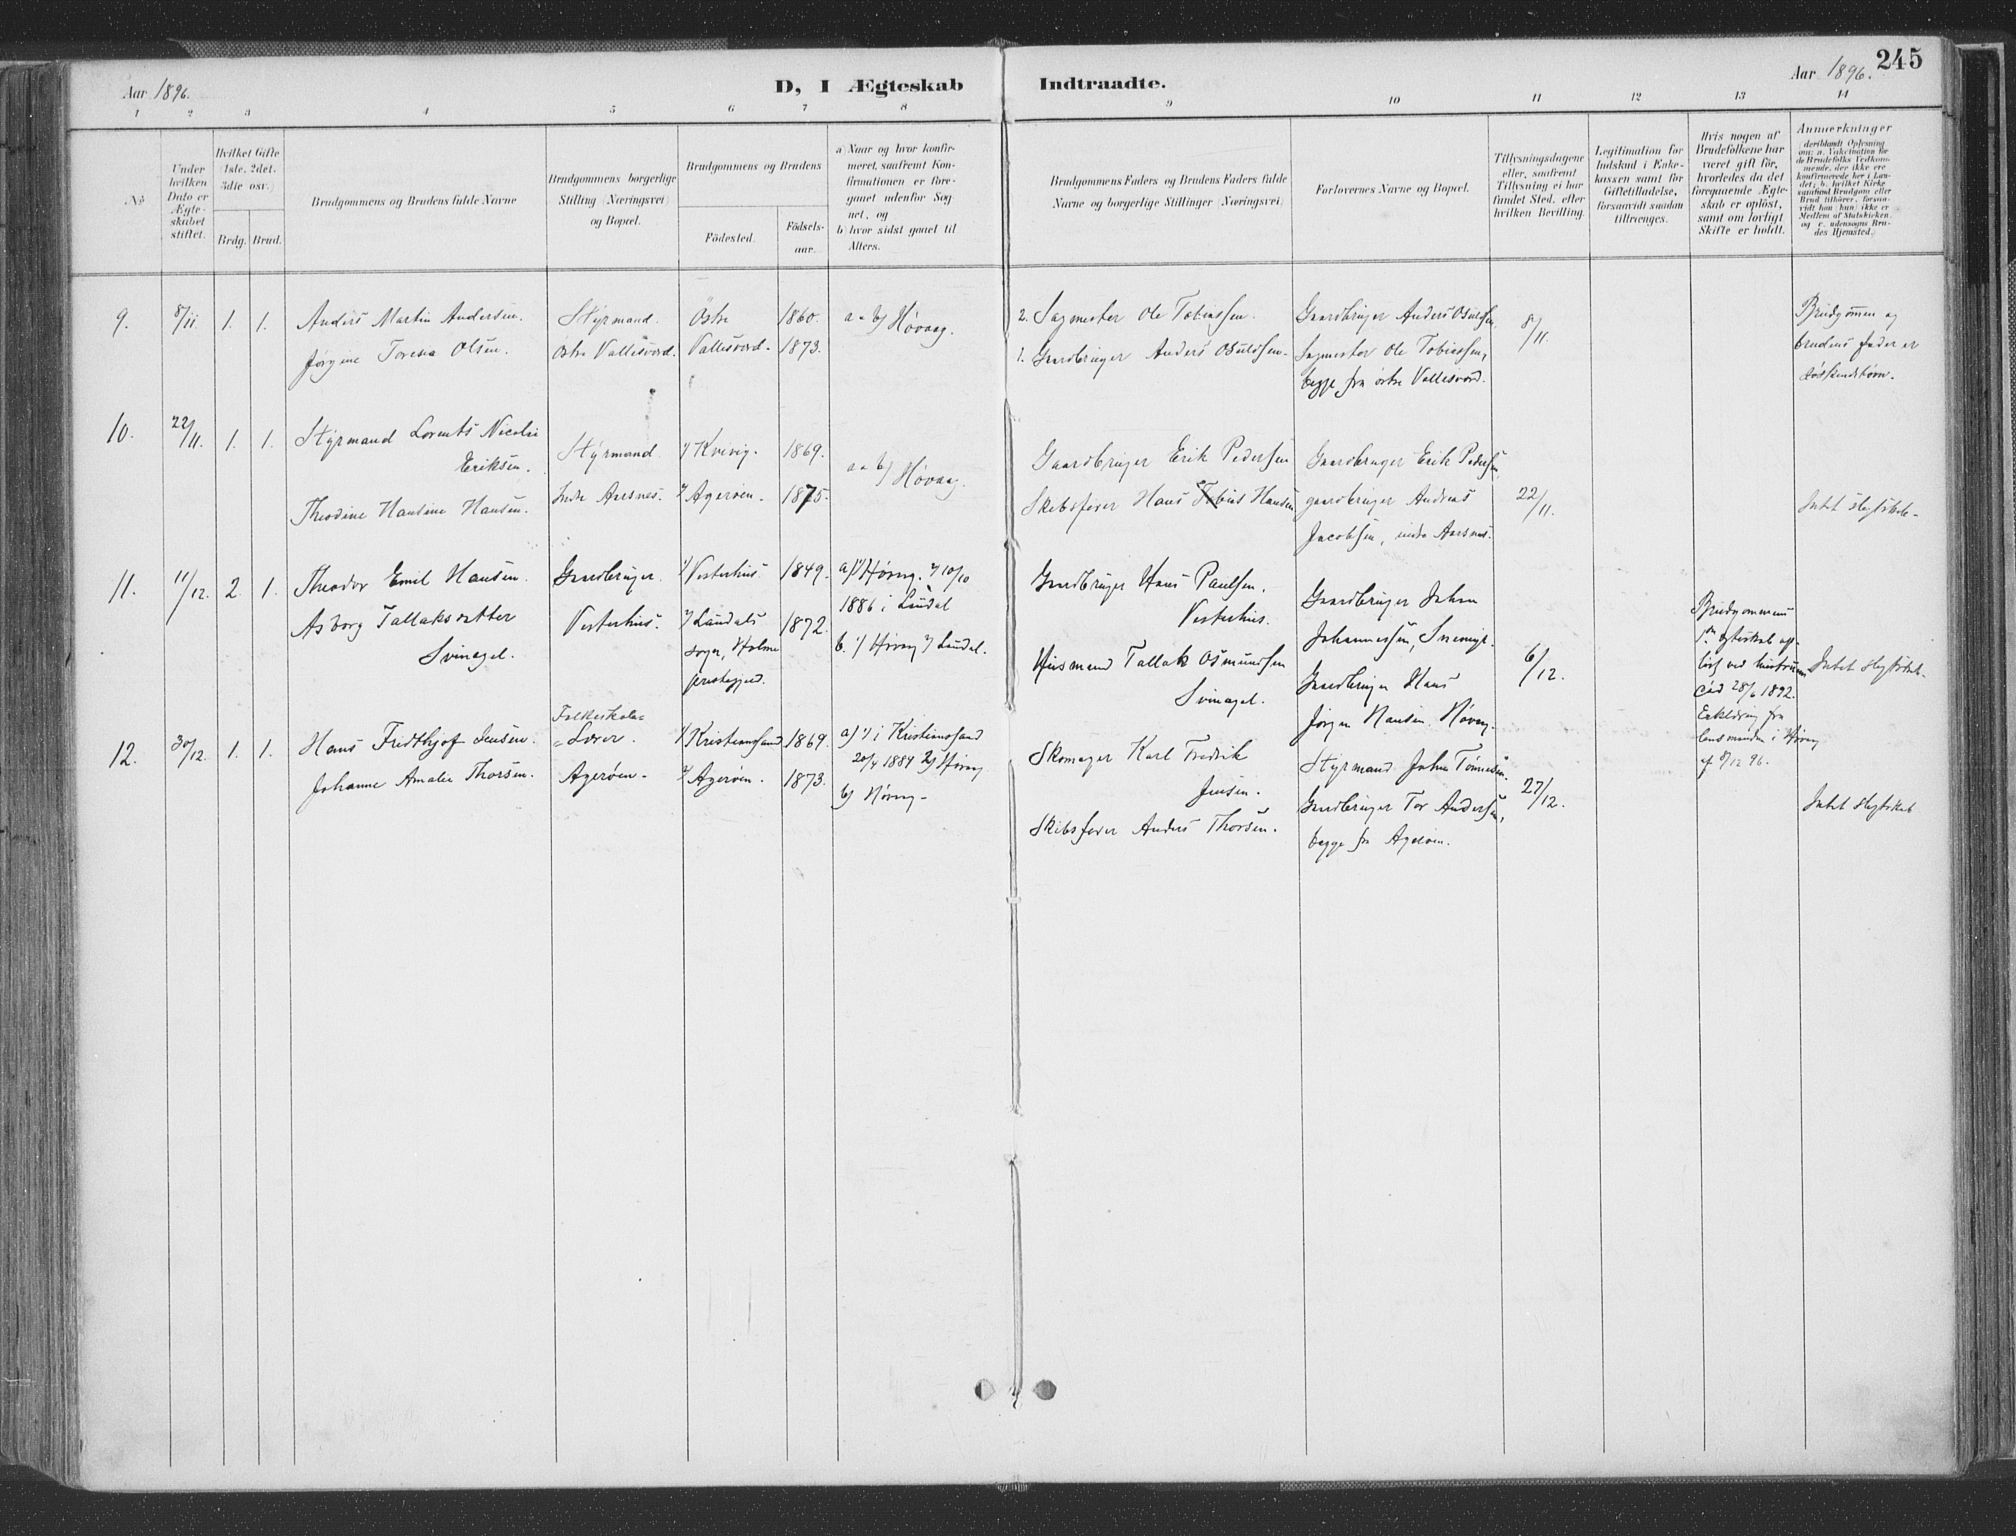 245
Aar 1896.
D, I Ægteskab Indtraadte.
Aar 1896.
1 2 3 4 5 6 7 8 9 10 11 12 13 14
No
Under hvilken Dato er Ægteskabet stiftet.
Hvilket Gifte (1ste, 2det, 3die osv.)
Brdg. Brud.
Brudgommens og Brudens fulde Navne
Brudgommens borgerlige Stilling (Næringsvei) og Bopæl.
Brudgommens og Brudens
Fødested.
Fødsels-aar.
a) Naar og hvor konfirmeret, saafremt Konfirmationen er foregaaet udenfor Sognet, og
b) hvor sidst gaaet til Alters.
Brudgommens Faders og Brudens Faders fulde Navne og borgerlige Stillinger (Næringsvei)
Forlovernes Navne og Bopæl.
Tillysningsdagene eller, saafremt Tillysning ei har fundet Sted, efter hvilken Bevilling.
Legitimation for Indskud i Enkekassen samt for Giftetilladelse, forsaavidt saadan tiltrænges.
Hvis nogen af Brudefolkene har været gift før, hvorledes da det foregaaende Ægteskab er opløst, samt om lovligt Skifte er holdt.
Anmærkninger
(deriblandt Oplysning om: a. Vakcination for de Brudefolks Vedkommende, der ikke ere konfirmerede her i Landet; b. hvilket Kirkesamfund Brudgom eller Brud tilhører, forsaavidt han (hun) ikke er Medlem af Statskirken, og c. udensogns Brudes Hjemsted.
9. 8/11. 1. 1.
Anders Martin Andersen.
Jørgine Toresia Olsen.
Styrmand.
Østre Vallesverd.
Østre Vallesverd.
1860.
1873.
a & b) Høvaag.
2. Sagmester Ole Tobiassen.
1. Gaardbruger Anders Osuldsen.
Gaardbruger Anders Osuldsen
Sagmester Ole Tobiassen,
begge fra østre Vallesverd.
8/11.
Brudgommen og
brudens fader er
sødskendebørn.
10. 22/11. 1. 1.
Styrmand Lorents Nicolai
Eriksen.
Theodine Hansine Hansen.
Styrmand
Indre Aarsnes.
1) Kvivig.
2) Agerøen.
1869.
1875.
a & b) Høvaag.
Gaardbruger Erik Pedersen
Skibsfører Hans Tobias Hansen
Gaardbruger Erik Pedersen,
gaardbruger Andreas
Jacobsen, indre Aarsnes.
22/11.
Intet slegtskab.
11. 11/12. 2. 1.
Theodor Emil Hansen.
Asborg Tallaksdatter
Svinagel.
Gaardbruger.
Vesterhus.
1) Vesterhus
2) Laudals
sogn, Holme
prestegjeld.
1849.
1872.
a) 1) Høvag. 2) 10/10
1886 i Laudal
b. 1) Høvag 2) Laudal.
Gaardbruger Hans Paulsen.
Vesterhus.
Husmand Tallak Osmundsen
Svinagel.
Gaardbruger Johan
Johannessen,
Gaardbruger Hans
Jørgen Hansen. Høvag.
6/12.
Brudgommens
1ste egteskab op-
løst ved hustruens
død 28/6 1892.
Erklæring fra
lensmanden i Høvag
af 9/12 96.
Intet slegtskab.
12. 30/12. 1. 1.
Hans Fridthjof Jensen.
Johanne Amalie Thorsen.
Folkeskole-
Lærer.
Agerøen.
1) Kristianssand
2) Agerøen.
1869.
1873.
a) 1) i Kristianssand
20/4 1884 2) Høvag
b) Høvag.
Skomager Karl Fredrik
Jensen.
Skibsfører Anders Thorsen.
Styrmand John Tønnesen.
Gaardbruger Tor Andersen,
begge fra Agerøen.
27/12.
Intet slegtskab